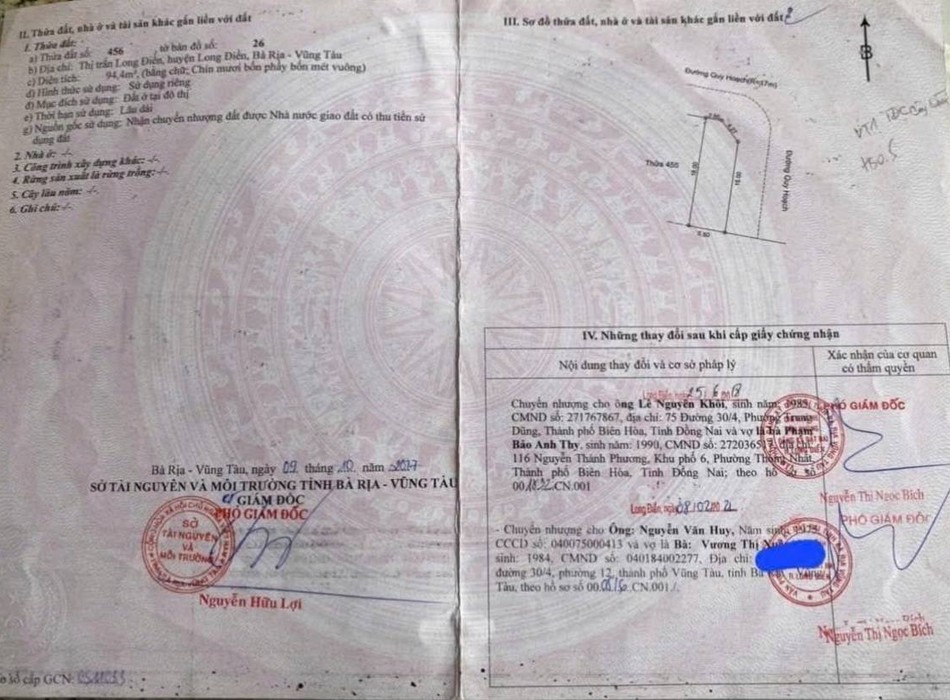 II. Thửa đất, nhà ở và tài sản khác gắn liền với đất
1. Thửa đất:
a) Thửa đất số: 456 tờ bản đồ số: 26
b) Địa chỉ: Thị trấn Long Điền, huyện Long Điền, Bà Rịa - Vũng Tàu
c) Diện tích: 94,4m², (bằng chữ: Chín mươi bốn phẩy bốn mét vuông)
d) Hình thức sử dụng: Sử dụng riêng
đ) Mục đích sử dụng: Đất ở tại đô thị
e) Thời hạn sử dụng: Lâu dài
g) Nguồn gốc sử dụng: Nhận chuyển nhượng đất được Nhà nước giao đất có thu tiền sử
dụng đất
2. Nhà ở: -/-
3. Công trình xây dựng khác: -/-
4. Rừng sản xuất là rừng trồng: -/-
5. Cây lâu năm: -/-
6. Ghi chú: -/-
Bà Rịa - Vũng Tàu, ngày 09 tháng 10 năm
SỞ TÀI NGUYÊN VÀ MÔI TRƯỜNG TỈNH BÀ RỊA - VŨNG TÀU
GIÁM ĐỐC
PHÓ GIÁM ĐỐC
SỞ
TÀI NGUYÊN
VÀ
MÔI TRƯỜNG
Nguyễn Hữu Lợi
số cấp GCN:
III. Sơ đồ thửa đất, nhà ở và tài sản khác gắn liền với đất
B
Đường Quy Hoạch
Thửa 455
Đường Quy Hoạch
IV. Những thay đổi sau khi cấp giấy chứng nhận
Nội dung thay đổi và cơ sở pháp lý
Xác nhận của cơ quan
có thẩm quyền
Long Điền, ngày
Chuyển nhượng cho ông Lê Nguyên Khôi, sinh năm: 1985,
CMND số: 271767867, địa chỉ: 75 Đường 30/4, Phường Trung
Dũng, Thành phố Biên Hòa, Tỉnh Đồng Nai và vợ là bà Phạm
Bảo Anh Thy, sinh năm: 1990, CMND số:
116 Nguyễn Thành Phương, Khu phố 6, Phường Thống Nhất,
Thành phố Biên Hòa, Tỉnh Đồng Nai; theo hồ sơ số
.CN.001
PHÓ GIÁM ĐỐC
Nguyễn Thị Ngọc Bích
Long Điền, ngày
- Chuyển nhượng cho Ông: Nguyễn Văn Huy, Năm sinh:
CCCD số: 040075000413 và vợ là Bà: Vương Thị
sinh: 1984, CMND số: 040184002277, Địa chỉ:
đường 30/4, phường 12, thành phố Vũng Tàu, tỉnh Bà Vũng
Tàu, theo hồ sơ số .CN.001./.
PHÓ GIÁM ĐỐC
Nguyễn Thị Ngọc Bích